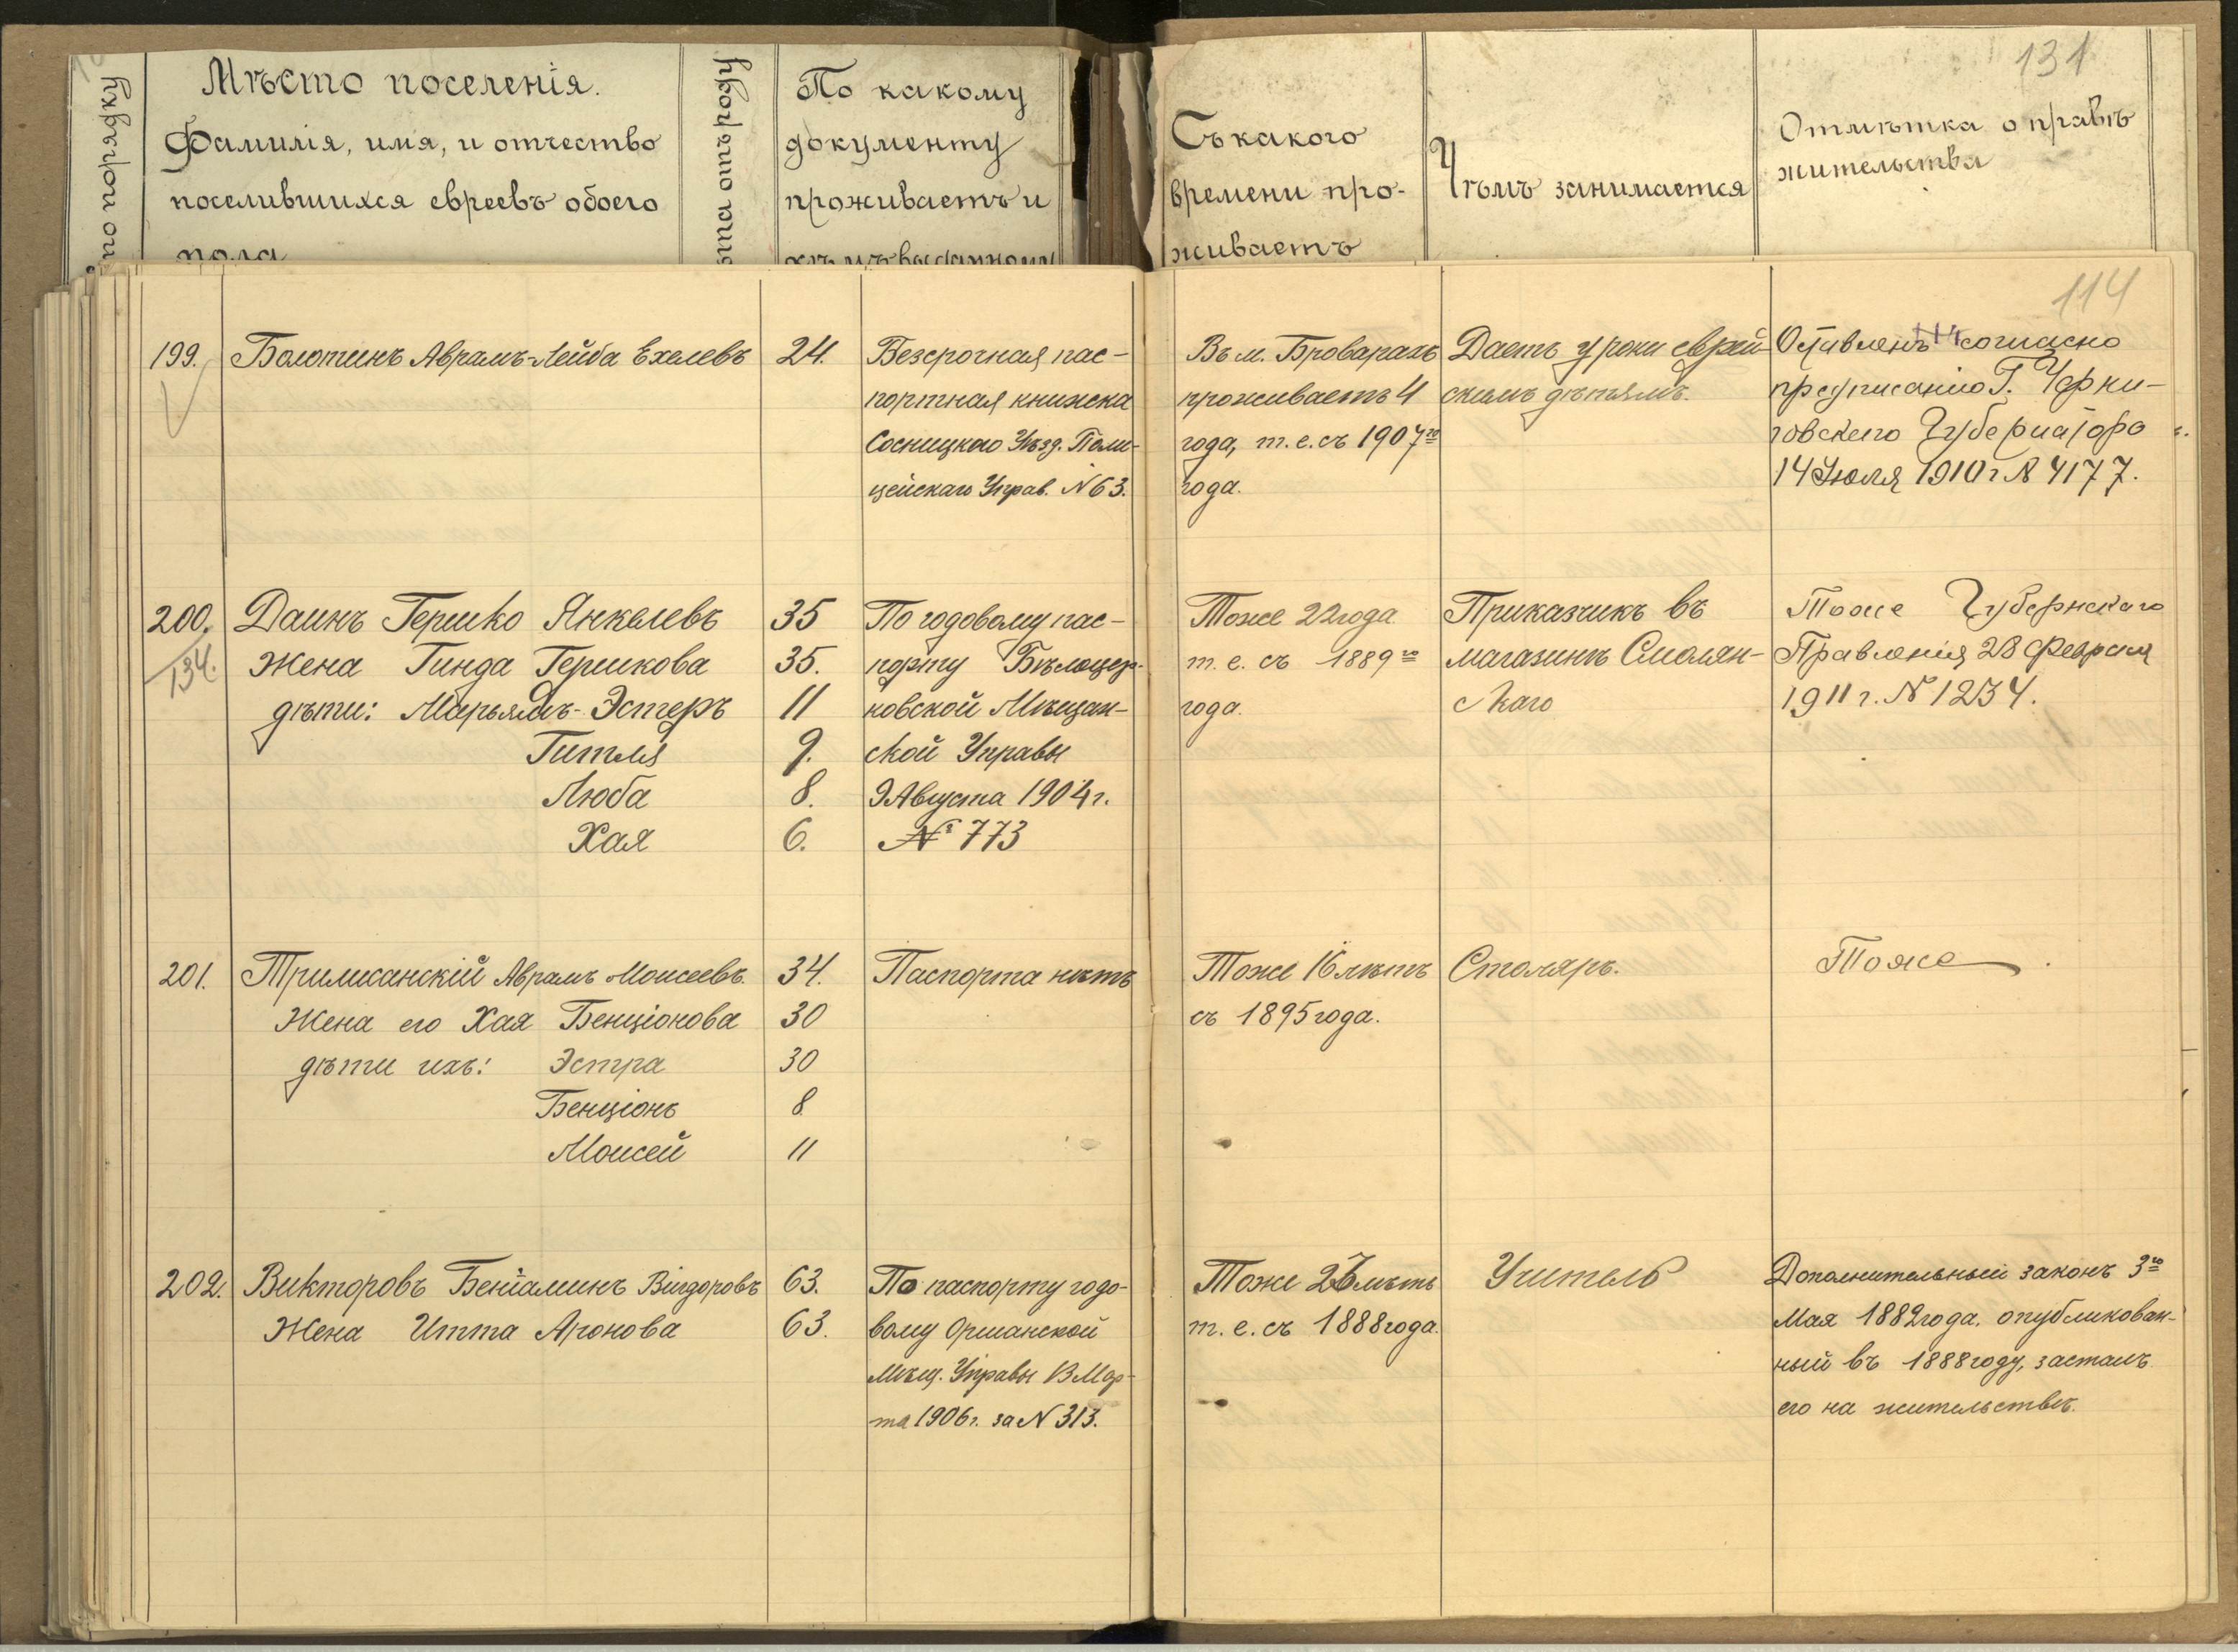 по порядку
Мѣсто поселенія.
Фамилія, имя, и отчество
поселившихся евреевъ обоего
пола
отъ роду
По какому
документу
проживаетъ и
кѣмъ выданному
Съ какого
времени про-
живаетъ
Чѣмъ занимается
Отмѣтка о правѣ
жительства
131
114
199.
Болотинъ Аврамъ-Лейба Ехелевъ
24.
Безсрочная пас-
портная книжка
Сосницкаго Уѣзд. Поли-
цейскаго Управ. N 63.
Въ м. Броварахъ
проживаетъ 4
года, т. е. съ 1907го
года.
Даетъ уроки еврей-
скимъ дѣтямъ.
Оставленъ согласно
предписанію Г. Черни-
говскаго Губернатора
14 Іюля 1910 г. № 4177.
200.
134.
Даинъ Гершко Янкелевъ
Жена Гинда Гершкова
дѣти: Марьямъ-Эстеръ
Гитля
Люба
Хая
35
35.
11
9.
8.
6.
По годовому пас-
порту Бѣлоцер-
ковской Мѣщан-
ской Управы
9 Августа 1904 г.
№ 773
Тоже 22 года
т. е. съ 1889го
года.
Приказчикъ въ
магазинѣ Смолян-
скаго
Тоже Губернскаго
Правленія 28 Февраля
1911 г. № 1234.
201.
Аврамъ Моисеевъ.
Жена его Хая Бенціонова
дѣти ихъ: Эстра
Бенціонъ
Моисей
34.
30
30
8
11
Паспорта нѣтъ
Тоже 16 лѣтъ
съ 1895 года.
Столяръ.
Тоже
202.
Викторовъ Беніаминъ Вигдоровъ
Жена Итта Аронова
63.
63.
По паспорту годо-
вому Оршанской
Мѣщ. Управы Мар-
та 1906 г. за N 313.
Тоже лѣтъ
т. е. съ 1888 года.
Учитель
Дополнительный законъ 3го
Мая 1882 года, опубликован-
ный въ 1888 году, засталъ
его на жительствѣ.